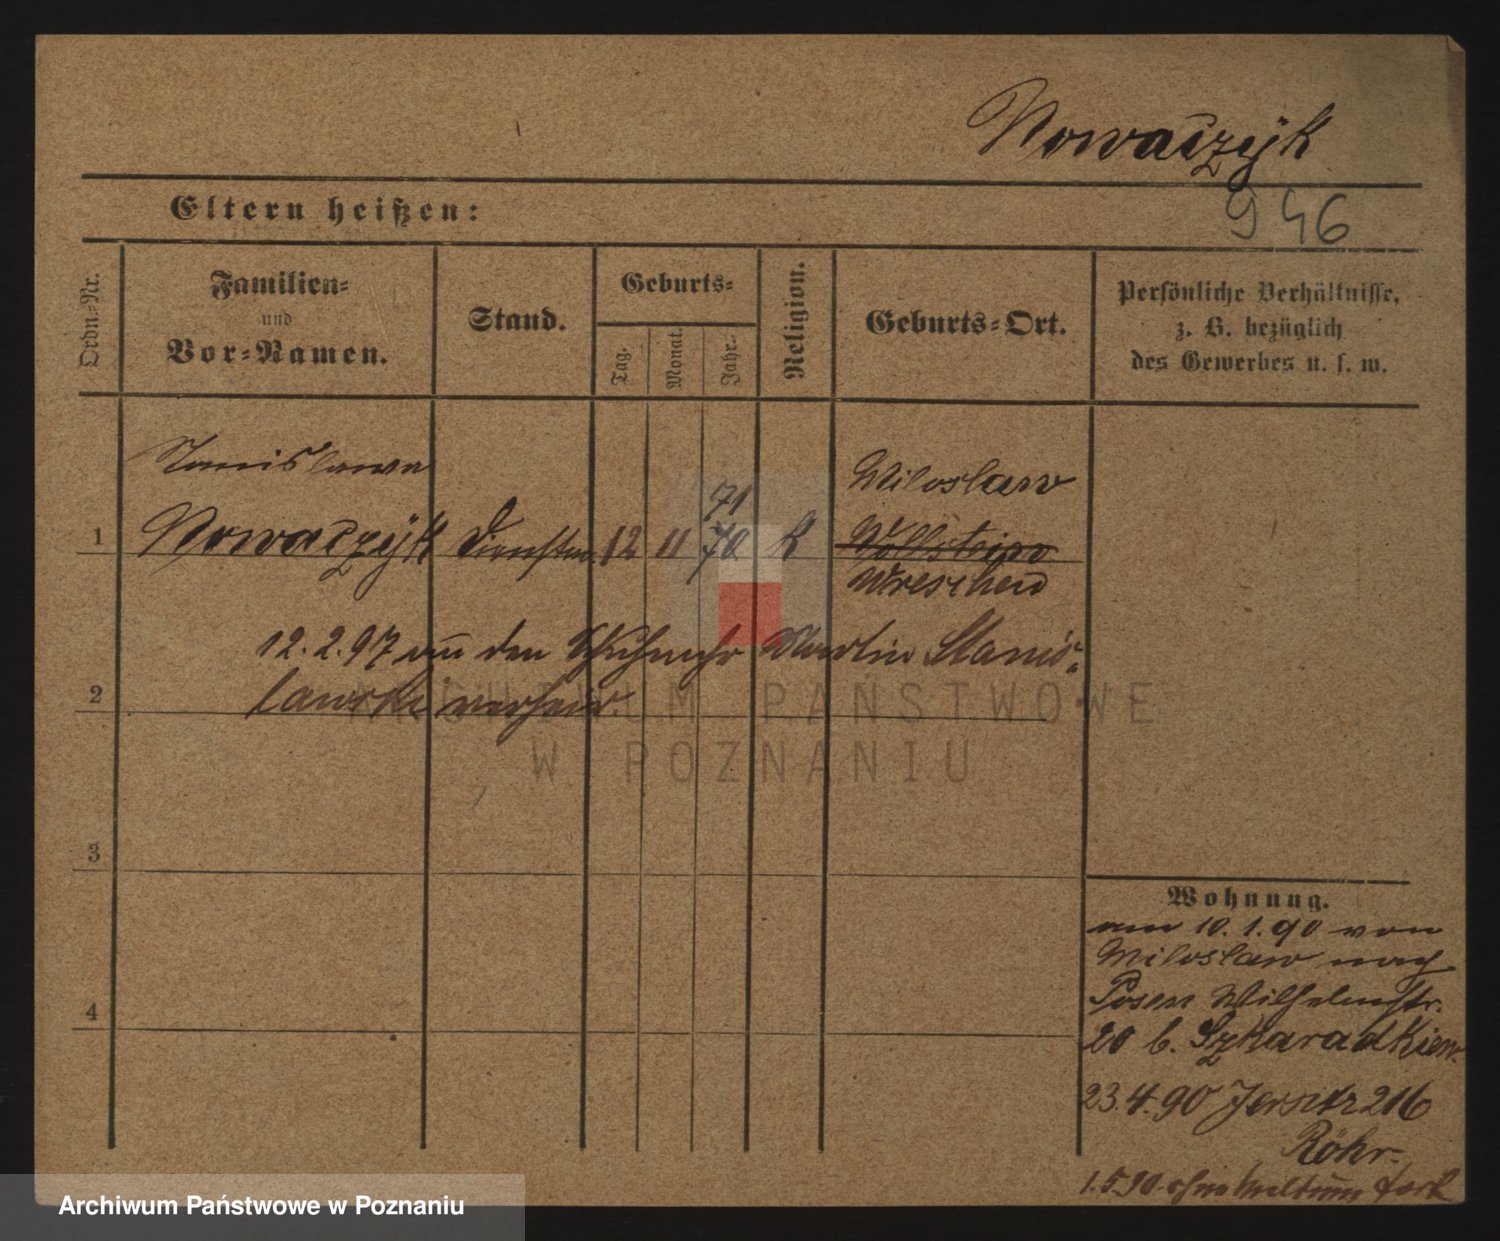 Nowaczÿk
946
Eltern heißen:
Ordn.-Nr.
Familien-
und
Vor-Namen.
Stand.
Geburts-
Tag.
Monat.
Jahr.
Religion.
Geburts-Ort.
Persönliche Verhältnisse,
z. B. bezüglich
des Gewerbes u. s. w.
Stanislawa
Miloslaw
71
1 Nowaczÿk Dienstm. 12 11 70 K Wollstein
Wreschen
12.2.97 an den Martin Stanis-
2 lawski verheir.
ARCHIWUM PAŃSTWOWE
W POZNANIU
3
4
Wohnung.
am 10.1.90 von
Miloslaw nach
Posen Wilhelmstr.
20 b. Szkaradkiew.
23.4.90 Jersitz 216
Röhr.
1.5.90 ohne Meldung fort
Archiwum Państwowe w Poznaniu